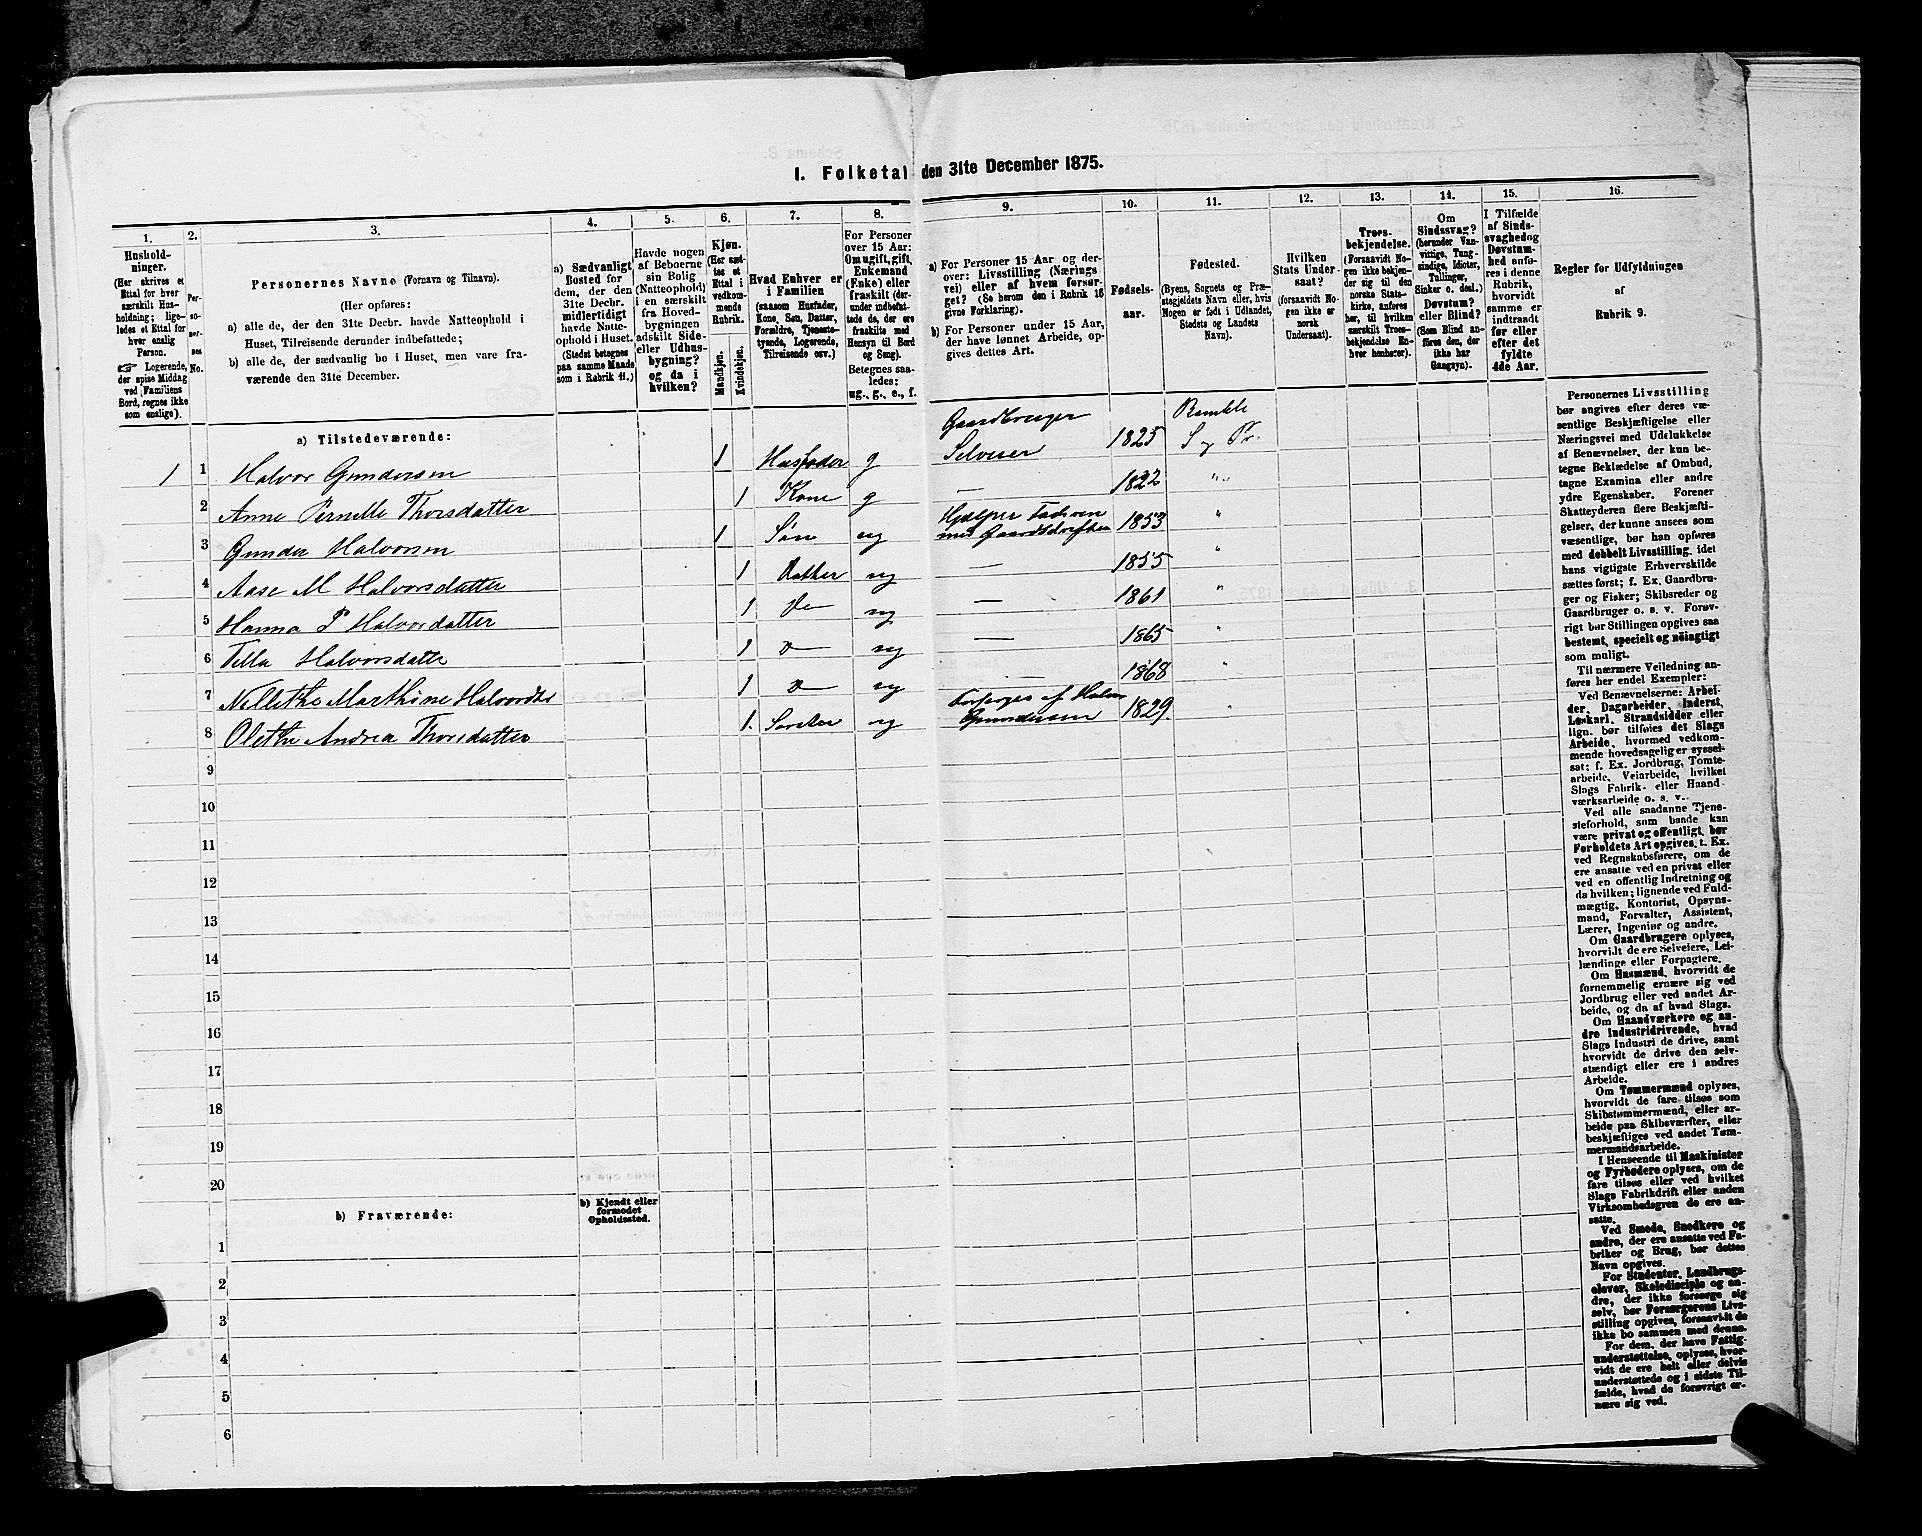 1. Folketal den 31te December 1875.
1.
2.
3.
4.
5.
6.
7.
8.
9.
10.
11.
12.
13.
14.
15.
16.
Hushold-
ninger.
(Her skrives et
Ettal for hver
særskilt Hus-
holdning; lige-
ledes et Ettal for
hver enslig
Person.
☞ Logerende,
der spise Middag
ved Familiens
Bord, regnes ikke
som enslige).
Per-
so-
ner-
nes
No.
Personernes Navne (Fornavn og Tilnavn).
(Her opføres:
a) alle de, der den 31te Decbr. havde Natteophold i
Huset, Tilreisende derunder indbefattede;
b) alle de, der sædvanlig bo i Huset, men vare fra-
værende den 31te December.
a) Sædvanligt
Bosted for
dem, der den
31te Decbr.
midlertidigt
havde Natte-
ophold i Huset.
(Stedet betegnes
paa samme Maade
som i Rubrik 11.)
Havde nogen
af Beboerne
sin Bolig
(Natteophold)
i en særskilt
fra Hoved-
bygningen
adskilt Side-
eller Udhus-
bygning?
og da i
hvilken?
Kjøn.
(Her sæt-
tes et
Ettal i
vedkom-
mende
Rubrik.
Mandkjøn.
Kvindekjøn.
Hvad Enhver er
i Familien
(saasom Husfader,
Kone, Søn, Datter,
Forældre, Tjeneste-
tyende, Logerende,
Tilreisende osv.)
For Personer
over 15 Aar:
Om ugift, gift,
Enkemand
(Enke) eller
fraskilt (der-
under indbefat-
tede de, der ere
fraskilte med
Hensyn til Bord
og Seng).
Betegnes saa-
ledes:
ug., g., e., f.
a) For Personer 15 Aar og der-
over: Livsstilling (Nærings
vei) eller af hvem forsør-
get? (Se herom den i Rubrik 16
givne Forklaring).
b) For Personer under 15 Aar,
der have lønnet Arbeide, op-
gives dettes Art.
Fødsels-
aar.
Fødested.
(Byens, Sognets og Præ-
stegjeldets Navn eller, hvis
Nogen er født i Udlandet,
Stedets og Landets
Navn).
Hvilken
Stats Under-
saat?
(forsaavidt No-
gen ikke er
norsk
Undersaat).
Troes-
bekjendelse.
(Forsaavidt No-
gen ikke bekjen-
der sig til den
norske Stats-
kirke, anføres
her, til hvilken
særskilt Troes-
bekjendelse En-
hver henhører).
Om
Sindssvag?
(herunder Van-
vittige, Tung-
sindige, Idioter,
Tullinger,
Sinker o. desl.)
Døvstum?
eller Blind?
(Som Blind an-
føres den, der
ikke har
Gangsyn).
I Tilfælde
af Sinds-
svaghed og
Døvstum-
hed anfø-
res i denne
Rubrik,
hvorvidt
samme er
indtraadt
før eller
efter det
fyldte
4de Aar.
Regler for Udfyldningen
af
Rubrik 9.
a) Tilstedeværende:
1 1 Halvor Gundersen 1 Husfader g Gaardbruger Selveier 1825 Bamble S og Pr.
2 Anne Pernille Thorsdatter 1 Kone g — 1822 "
3 Gunder Halvorsen 1 Søn ug Hjælper Faderen med Gaardsdriften 1853 "
4 Aase M Halvorsdatter 1 Datter ug — 1855 "
5 Hanna P Halvorsdatter 1 De ug — 1861 "
6 Tella Halvorsdatter 1 D— ug — 1865 "
7 Nellethe Marthine Halvorsdtr 1 D— ug — 1868 "
8 Olethe Andrea Thorsdatter 1. Søster ug Forsørges af Halvor Gundersen 1829. "
9
10
11
12
13
14
15
16
17
18
19
20
b) Fraværende:
b) Kjendt eller
formodet
Opholdssted.
1
2
3
4
5
6
Personernes Livsstilling
bør angives efter deres væ-
sentlige Beskjæftigelse eller
Næringsvei med Udelukkelse
af Benævnelser, der kun be-
tegne Beklædelse af Ombud,
tagne Examina eller andre
ydre Egenskaber. Forener
Skatteyderen flere Beskjæfti-
gelser, der kunne ansees som
væsentlige, bør han opføres
med dobbelt Livsstilling, idet
hans vigtigste Erhvervskilde
sættes først; f. Ex. Gaardbru-
ger og Fisker; Skibsreder og
Gaardbruger o. s. v. Forøv-
rigt bør Stillingen opgives saa
bestemt, specielt og nøiagtigt
som muligt.
Til nærmere Veiledning an-
føres her endel Exempler:
Ved Benævnelserne: Arbei-
der, Dagarbeider, Inderst,
Løskarl, Strandsidder eller
lign. bør tilføies det Slags
Arbeide, hvormed vedkom-
mende hovedsagelig er syssel-
sat; f. Ex. Jordbrug, Tomte-
arbeide, Veiarbeide, hvilket
Slags Fabrik- eller Haand-
værksarbeide o. s. v.
Ved alle saadanne Tjene-
steforhold, som baade kan
være privat og offentligt, bør
Forholdets Art opgives, t. Ex.
ved Regnskabsførere, om de
ere ansatte ved en privat eller
ved en offentlig Indretning og
da hvilken; lignende ved Fuld-
mægtig, Kontorist, Opsyns-
mand, Forvalter, Assistent,
Lærer, Ingeniør og andre.
Om Gaardbrugere oplyses,
hvorvidt de ere Selveiere, Lei-
lændinge eller Forpagtere.
Om Husmænd, hvorvidt de
fornemmelig ernære sig ved
Jordbrug eller ved andet Ar-
beide, og da af hvad Slags.
Om Haandværkere og an-
dre Industridrivende, hvad
Slags Industri de drive, samt
hvorvidt de drive den selv-
stændigt eller ere i andres
Arbeide.
Om Tømmermænd oplyses,
hvorvidt de fare tilsøs som
Skibstømmermænd, eller ar-
beide paa Skibsværfter, eller
beskjæftiges ved andet Tøm-
mermandsarbeide.
I Henseende til Maskinister
og Fyrbødere oplyses, om de
fare tilsøs eller ved hvilket
Slags Fabrikdrift eller anden
Virksomhedsgren de ere an-
satte.
Ved Smede, Snedkere og
andre, der ere ansatte ved Fa-
briker og Brug, bør dettes
Navn opgives.
For Studenter, Landbrugs-
elever, Skoledisciple og an-
dre, der ikke forsørge sig
selv, bør Forsørgerens Livs-
stilling opgives, forsaavidt de
ikke bo sammen med denne.
For dem, der have Fattig-
understøttelse, oplyses, hvor-
vidt de ere helt eller delvis
understøttede og i sidste Til-
fælde, hvad de forøvrigt er-
nære sig ved.